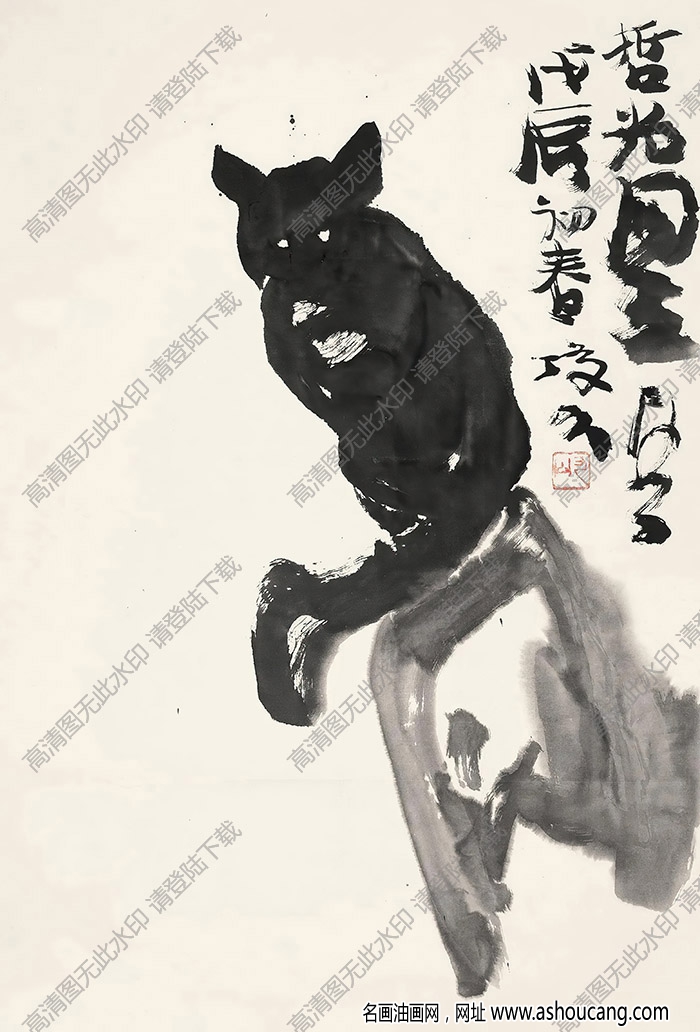 哲
戊辰初春
高清图无此水印 请登陆下载
高清图无此水印 请登陆下载
高清图无此水印 请
高清图无此水印 请登陆下载
高清图无此水印 请登陆下载
高清图无此水印 请
高清图无此水印 请登陆下载
高清图无此水印 请登陆下载
高清图无此水印 请
高清图无此水印 请登陆下载
高清图无此水印 请登陆下载
高清图无此水印 请
名画油画网，网址 www.ashoucang.com